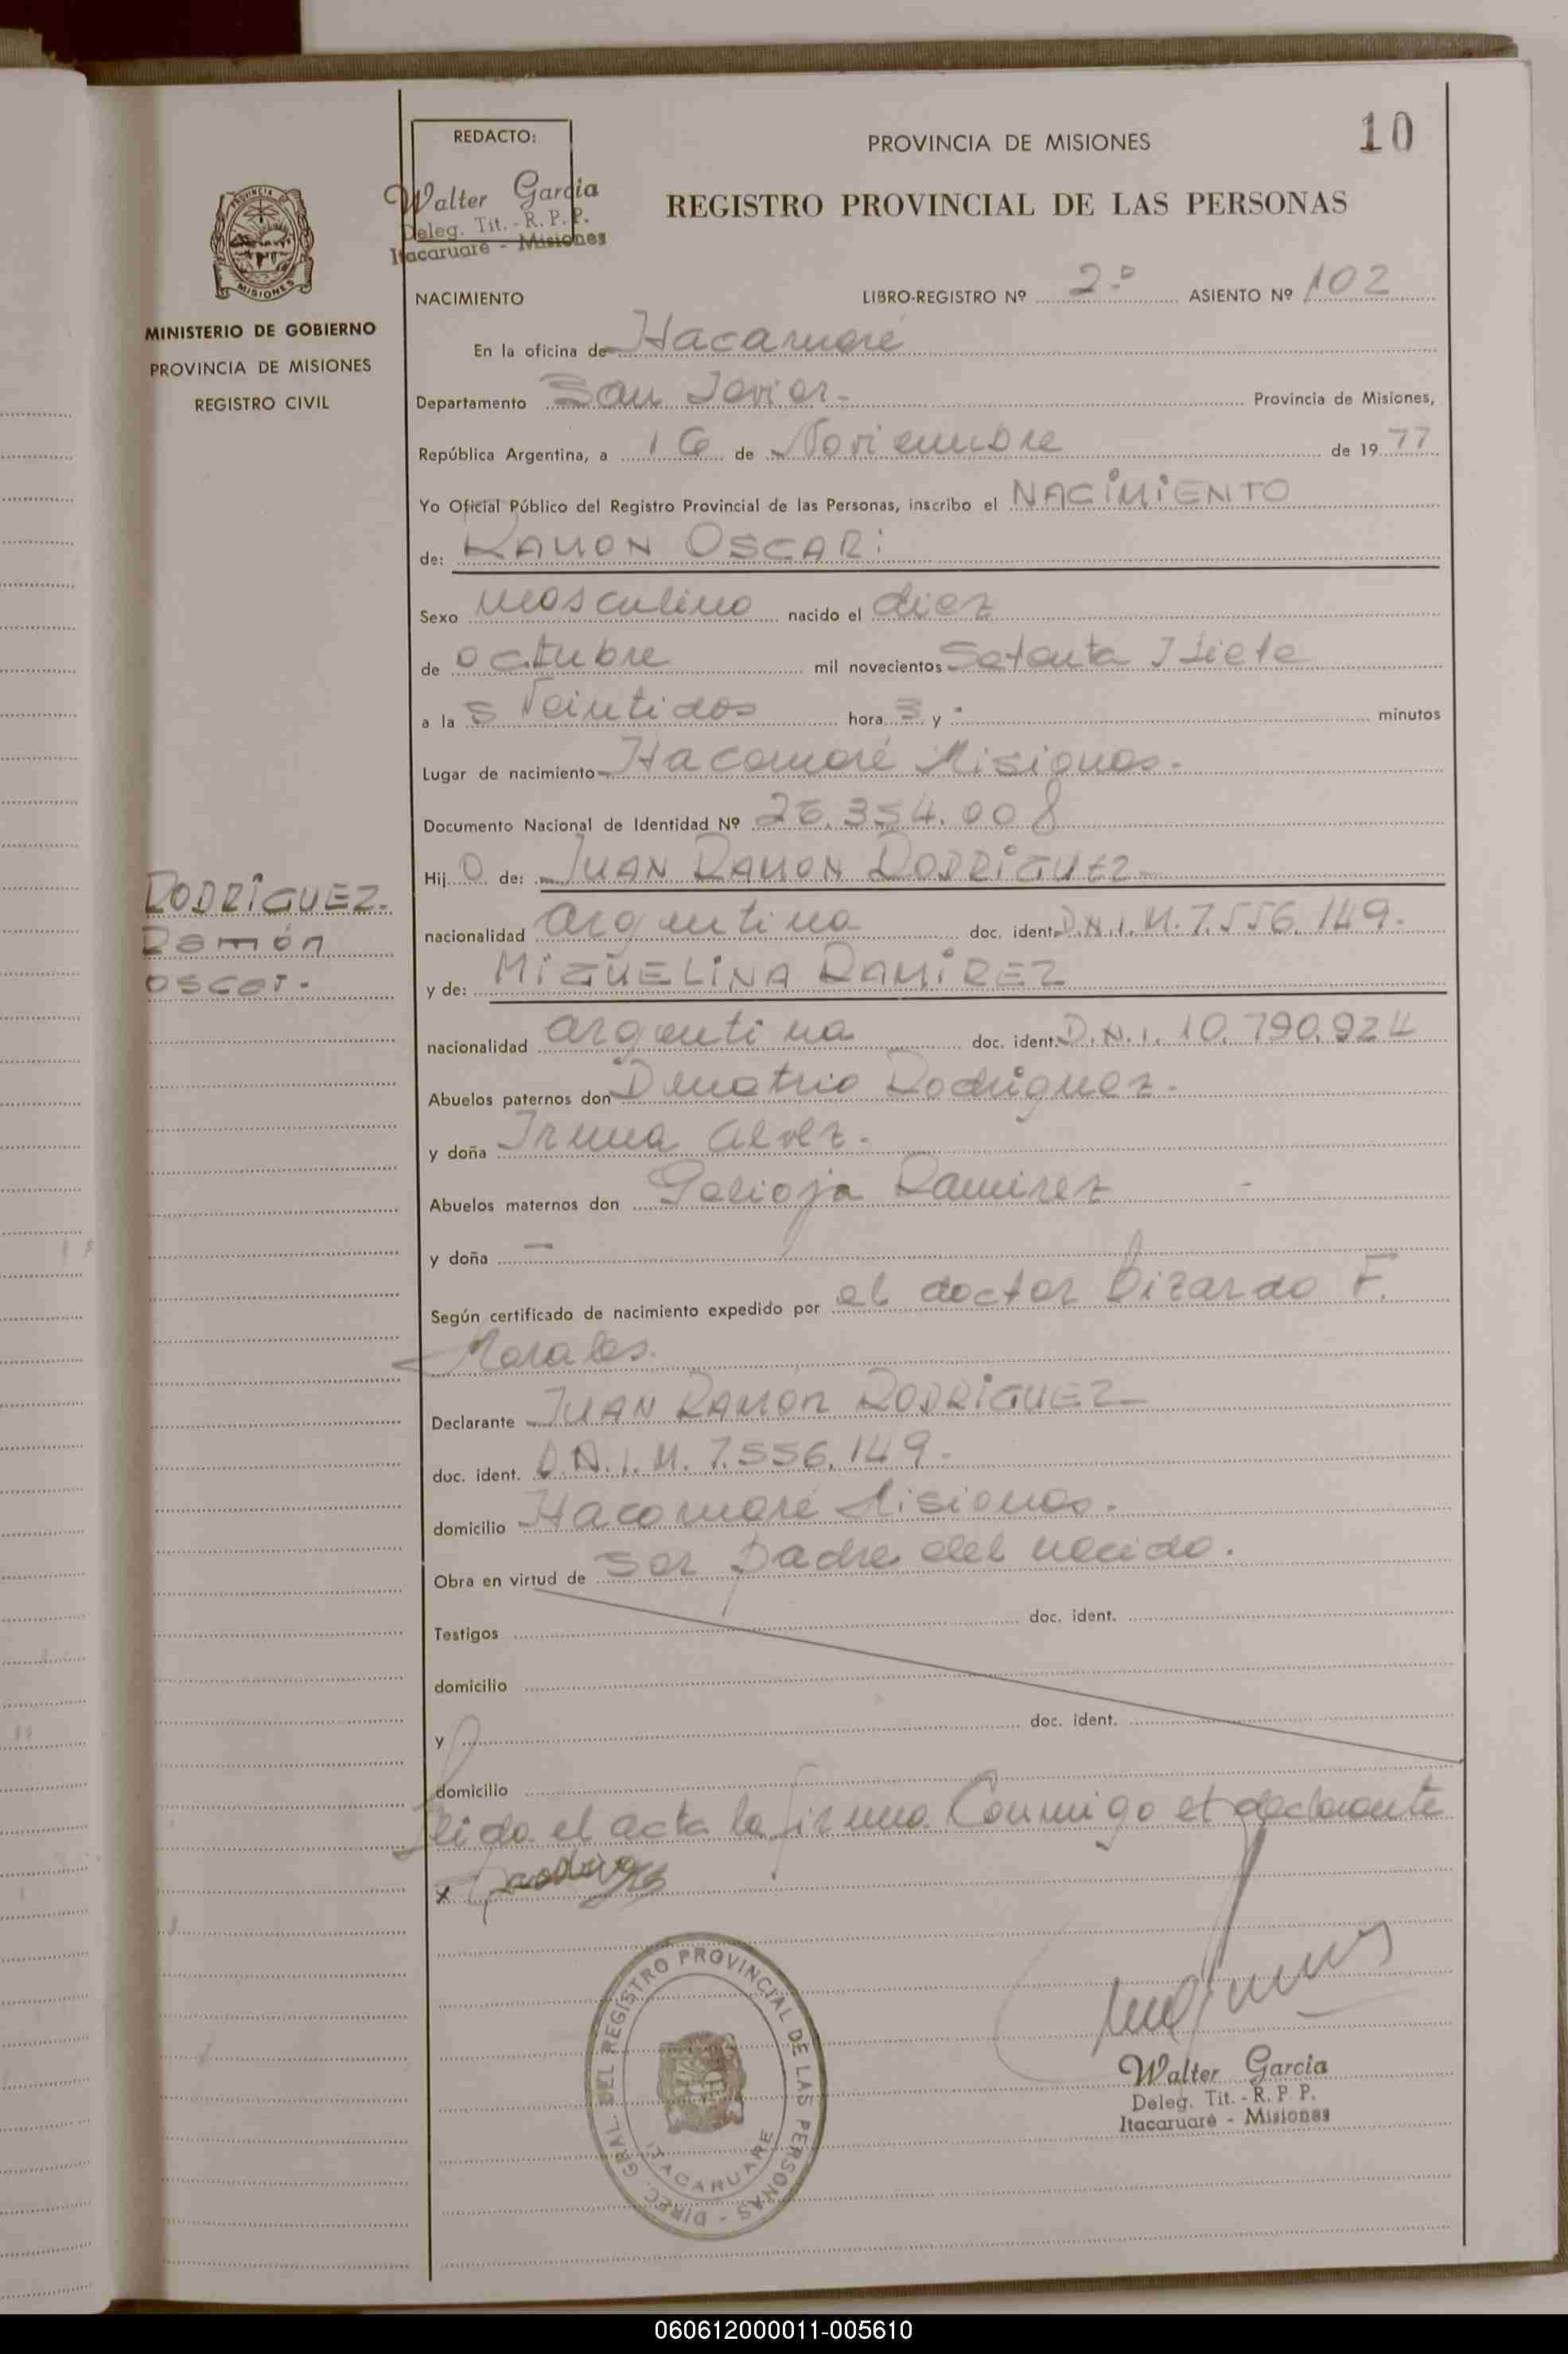 10
REDACTO:
PROVINCIA DE MISIONES
Walter Garcia
Deleg. Tit. - R. P. P.
Itacaruaré - Misiones
REGISTRO PROVINCIAL DE LAS PERSONAS
PROVINCIA DE MISIONES
MINISTERIO DE GOBIERNO
PROVINCIA DE MISIONES
REGISTRO CIVIL
NACIMIENTO LIBRO-REGISTRO Nº 2º ASIENTO Nº 102
En la oficina de Itacaruaré
Departamento San Javier - Provincia de Misiones,
República Argentina, a 16 de Noviembre de 1977
Yo Oficial Público del Registro Provincial de las Personas, inscribo el NACIMIENTO
de: RAMON OSCAR:
Sexo masculino nacido el diez
de octubre mil novecientos Setenta y siete
a la s Veintidos hora s y - minutos
Lugar de nacimiento Itacaruaré Misiones.
Documento Nacional de Identidad Nº 26.354.008
Hij o de: JUAN RAMON RODRIGUEZ
RODRIGUEZ.
Ramón
oscar.
nacionalidad argentina doc. ident. D.N.I.M. 7.556.149.
y de: MIGUELINA RAMIREZ
nacionalidad argentina doc. ident. D.N.I. 10.790.924
Abuelos paternos don Demetrio Rodriguez.
y doña Irma Alvez.
Abuelos maternos don Ramirez -
y doña —
Según certificado de nacimiento expedido por el doctor Lizardo F.
Morales.
Declarante JUAN RAMÓN RODRIGUEZ
doc. ident. D.N.I.M. 7.556.149.
domicilio Itacaruaré Misiones.
Obra en virtud de ser padre del nacido.
Testigos doc. ident.
domicilio
y doc. ident.
domicilio
Leida el acta la firma Conmigo el declarante
x
DIREC. GRAL. DEL REGISTRO PROVINCIAL DE LAS PERSONAS -
ITACARUARE
Walter Garcia
Deleg. Tit. - R. P. P.
Itacaruaré - Misiones
060612000011-005610